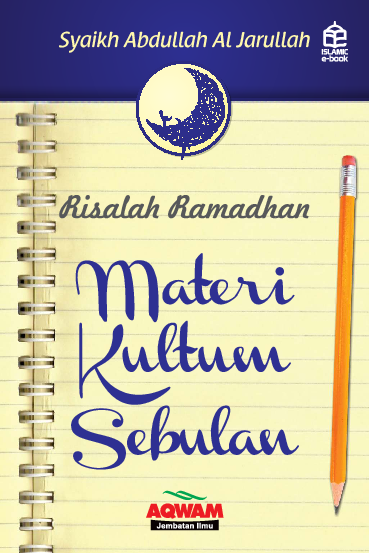 Syaikh Abdullah Al Jarullah
ISLAMIC
e-book
Risalah Ramadhan
Materi
Kultum
Sebulan
AQWAM
Jembatan Ilmu